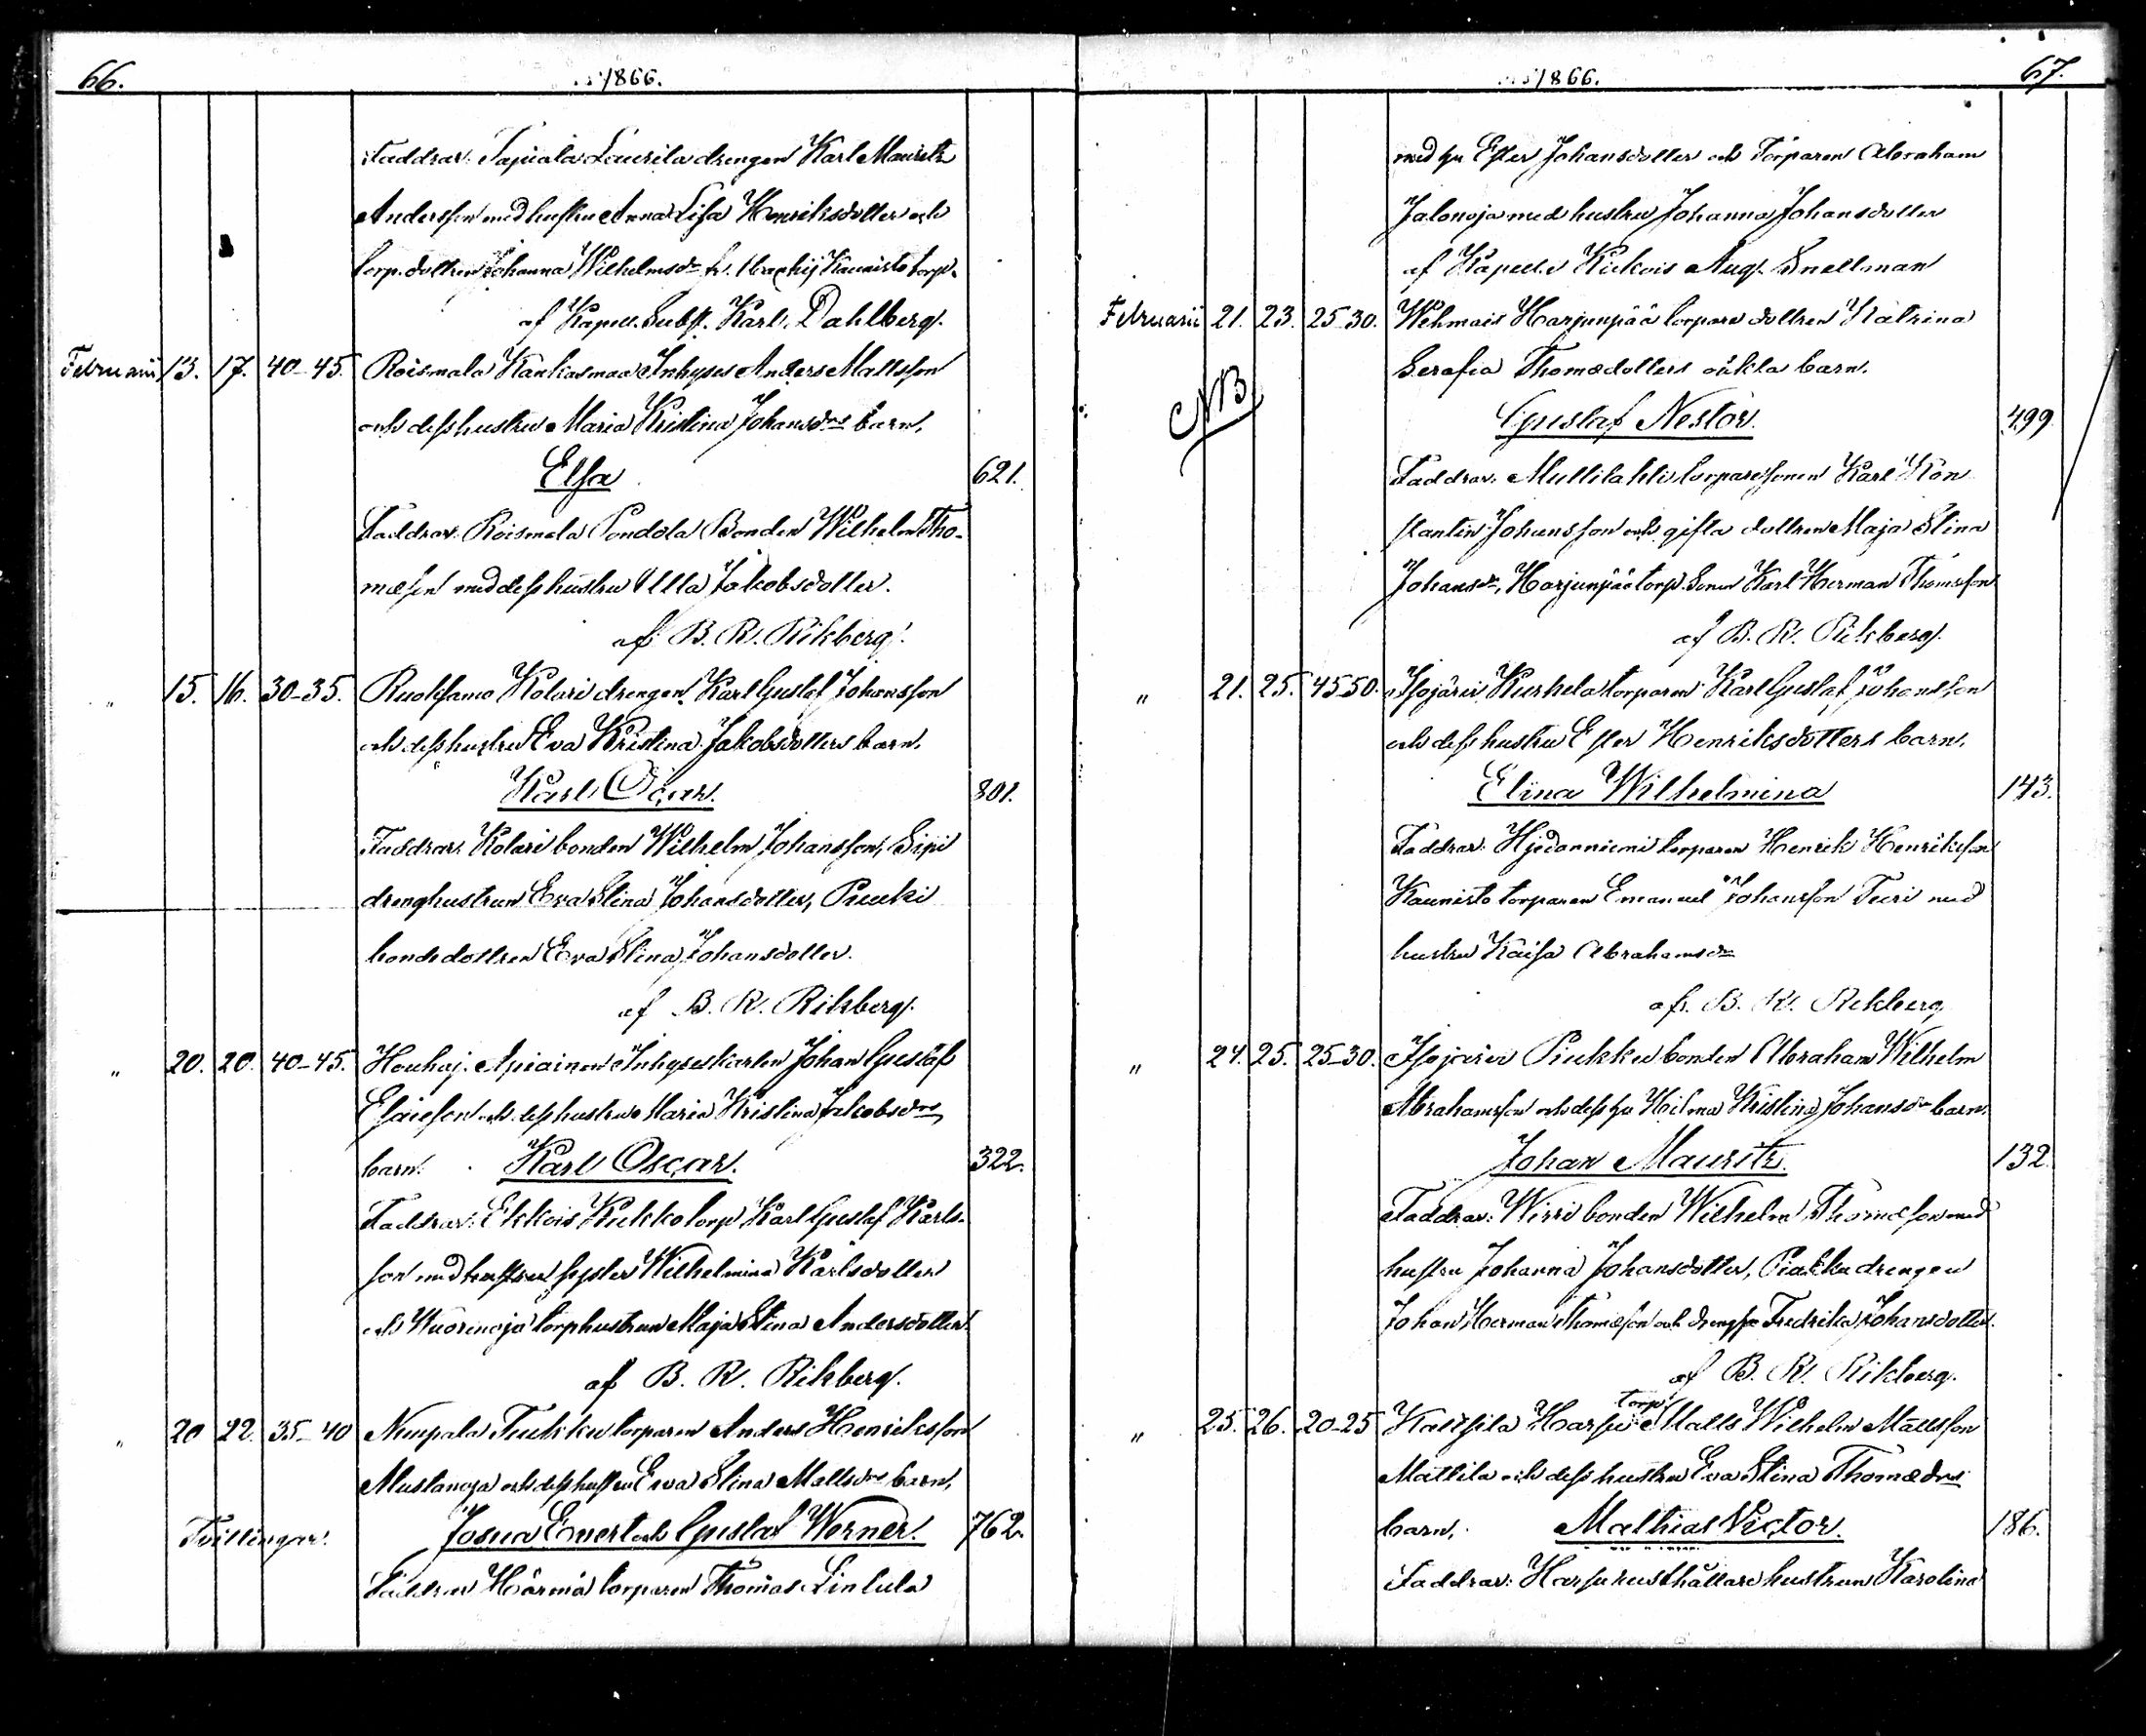 66.
1866.
Faddrar: Tapiala Laurila drengen Karl Mauritz
Andersson med hustru Anna Lisa Henriksdotter och
torp.dottren Johanna Wilhelmsdr fr. Kaunisto torp.
af Kapell. Subst. Karl Dahlberg.
Februarii 13. 17. 40-45. Roismala Kankasmaa Inhyses Anders Mattsson
och dess hustru Maria Kristina Johansdrs barn,
Elsa 621.
Faddrar: Roismala Pondola Bonden Wilhelm Tho-
mæson med dess hustru Ulla Jakobsdotter.
af B. R. Rikberg.
" 15. 16. 30-35. Ruoksamo Kolari drengen Karl Gustaf Johansson
och dess hustru Eva Kristina Jakobsdotters barn,
Karl Oscar. 801.
Faddrar: Kolari bonden Wilhelm Johansson, Sipi
drenghustrun Eva Stina Johansdotter, Penki
bondedottren Eva Stina Johansdotter.
af B. R. Rikberg.
" 20. 20. 40-45. Houhaj. Apiainen Inhyseskarlen Johan Gustaf
Esaiesson och dess hustru Maria Kristina Jakobsdrs
barn. Karl Oscar. 322.
Faddrar: Ekkois Kukko torp Karl Gustaf Karls-
son med syster Wilhelmina Karlsdotter
och Wuorenoja torphustrun Maja Stina Andersdotter.
af B. R. Rikberg.
" 20 22. 35-40 Nempala Tukku torparen Anders Henriksson
Mustanoja och dess hustru Eva Stina Mattsdrs barn,
Tvillingar. Josua Evert och Gustaf Werner. 762.
Faddrar Härmä torparen Thomas Lintula
67.
1866.
med hu Ester Johansdotter och Torparen Abraham
Jalonoja med hustru Johanna Johansdotter
af Kapell. i Kiikois Aug. Snellman
Februarii 21. 23. 25-30. Wehmais Harjunpää torpare dottren Katrina
NB Serafia Thomædotters oäkta barn.
Gustaf Nestor. 499
Faddrar: Mullitahti torparesonen Karl Kon
stantin Johansson och gifta dottren Maja Stina
Johansdr, Harjunpää torp. Sonen Karl Herman Thomæson
af B. R. Rikberg.
" 21. 25. 45-50. Isojärvi Kurhela torparen Karl Gustaf Johansson
och dess hustru Ester Henriksdotters barn,
Elina Wilhelmina 143.
Faddrar: Hjedanniemi torparen Henrik Henriksson
Kaunisto torparen Emanuel Johansson Turi med
hustru Kaisa Abrahamsdr
af. B. R. Rikberg
" 24. 25. 25-30. Isojärvi Piukku bonden Abraham Wilhelm
Abrahamsson och dess hu Hilma Kristina Johansdr barn.
Johan Mauritz. 132.
Faddrar: Wirri bonden Wilhelm Thomæson med
hustru Johanna Johansdotter, Piukku drengen
Johan Herman Thomæson och drenghu Fredrika Johansdotter.
af B. R. Rikberg.
torp.
" 25. 26. 20-25 Kaltsila Harsu Matts Wilhelm Mattsson
Mattila och dess hustru Eva Stina Thomædrs
barn, Mathias Victor. 186.
Faddrar: Harsu rusthållare hustrun Karolina